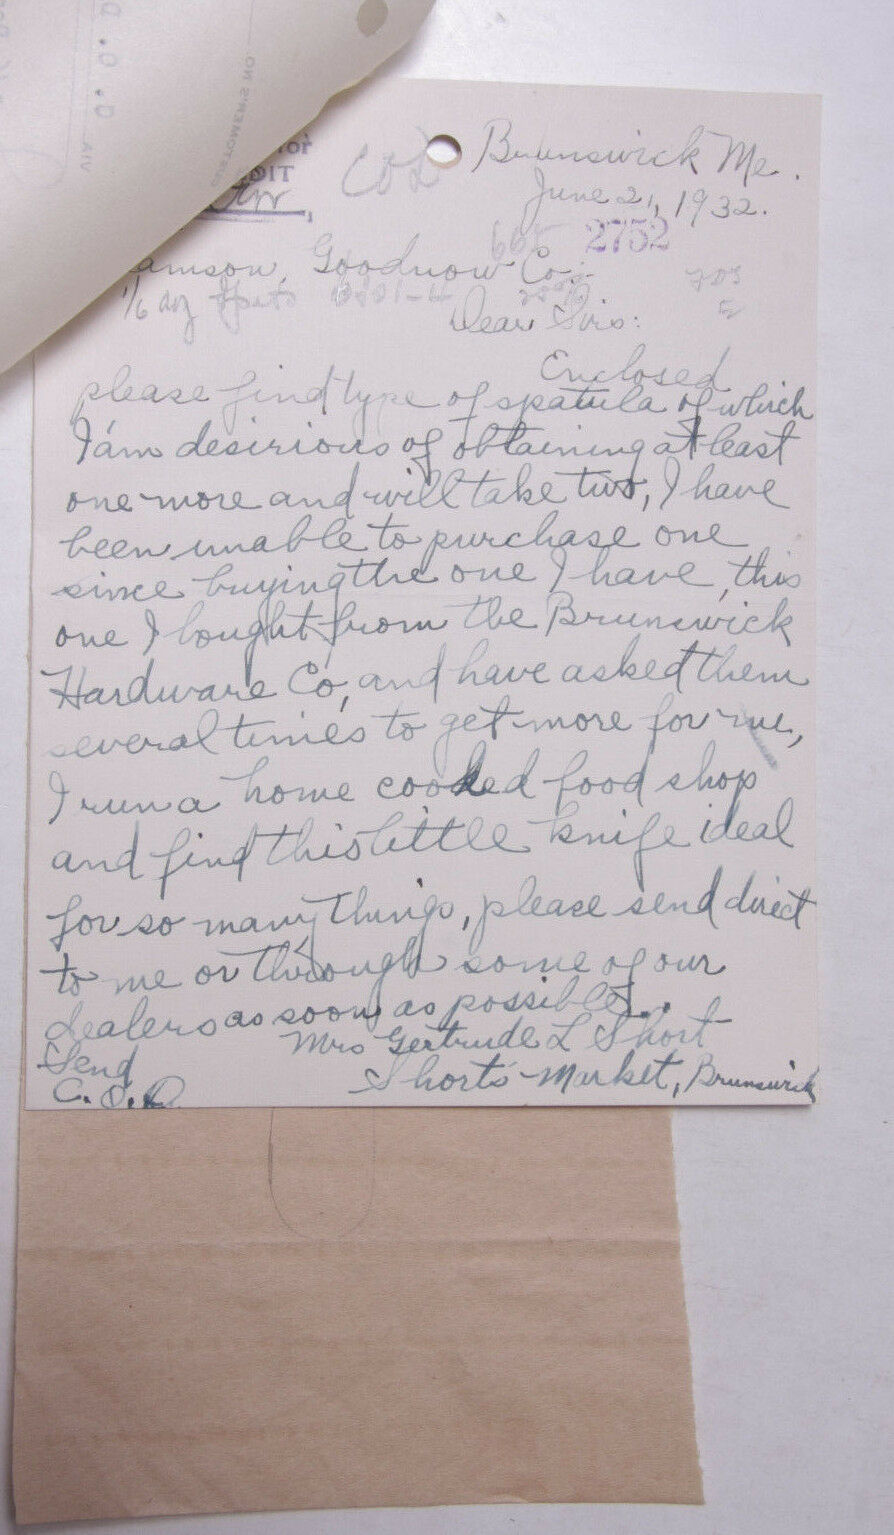 C.O.D.
VIA
CUSTOMER'S NO.
for
DIT
COD
Brunswick Me.
June 21, 1932.
665 2752
amson, Goodnow Co.
1/6 doz Spats
Dear Sirs:
Enclosed
please find type of spatula of which
I'am desirious of obtaining at least
one more and will take two, I have
been unable to purchase one
since buying the one I have, this
one I bought from the Brunswick
Hardware Co, and have asked them
several times to get more for me,
I run a home cooked food shop
and find this little knife ideal
for so many things, please send direct
to me or through some of our
dealers as soon as possible.
Mrs Gertrude L Short
Send
Short's Market, Brunswick
C.O.D.